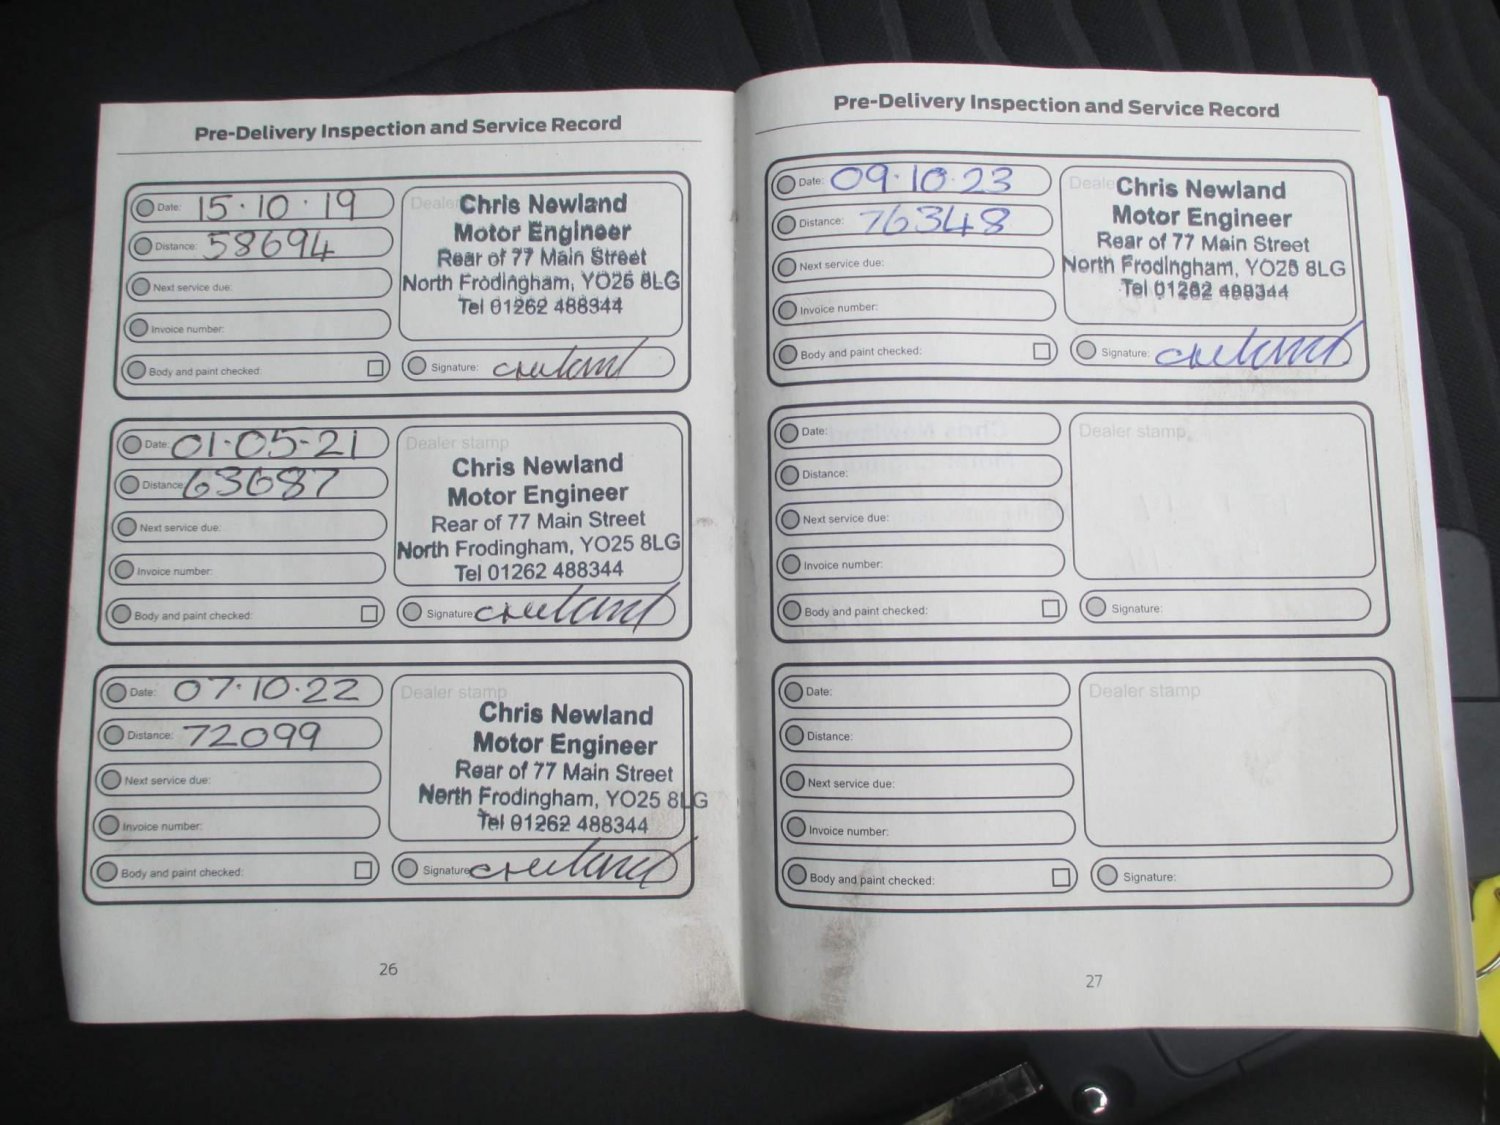 Pre-Delivery Inspection and Service Record
Date: 15·10·19
Distance: 58694
Next service due:
Invoice number:
Body and paint checked:
Dealer
Chris Newland
Motor Engineer
Rear of 77 Main Street
North Frodingham, YO25 8LG
Tel 01262 488344
Signature: CNewland
Date: 01·05·21
Distance: 63687
Next service due:
Invoice number:
Body and paint checked:
Dealer stamp
Chris Newland
Motor Engineer
Rear of 77 Main Street
North Frodingham, YO25 8LG
Tel 01262 488344
Signature: CNewland
Date: 07·10·22
Distance: 72099
Next service due:
Invoice number:
Body and paint checked:
Dealer stamp
Chris Newland
Motor Engineer
Rear of 77 Main Street
North Frodingham, YO25 8LG
Tel 01262 488344
Signature: CNewland
26
Pre-Delivery Inspection and Service Record
Date: 09·10·23
Distance: 76348
Next service due:
Invoice number:
Body and paint checked:
Deale
Chris Newland
Motor Engineer
Rear of 77 Main Street
North Frodingham, YO25 8LG
Tel 01262 488344
Signature: CNewland
Date:
Distance:
Next service due:
Invoice number:
Body and paint checked:
Dealer stamp
Signature:
Date:
Distance:
Next service due:
Invoice number:
Body and paint checked:
Dealer stamp
Signature:
27